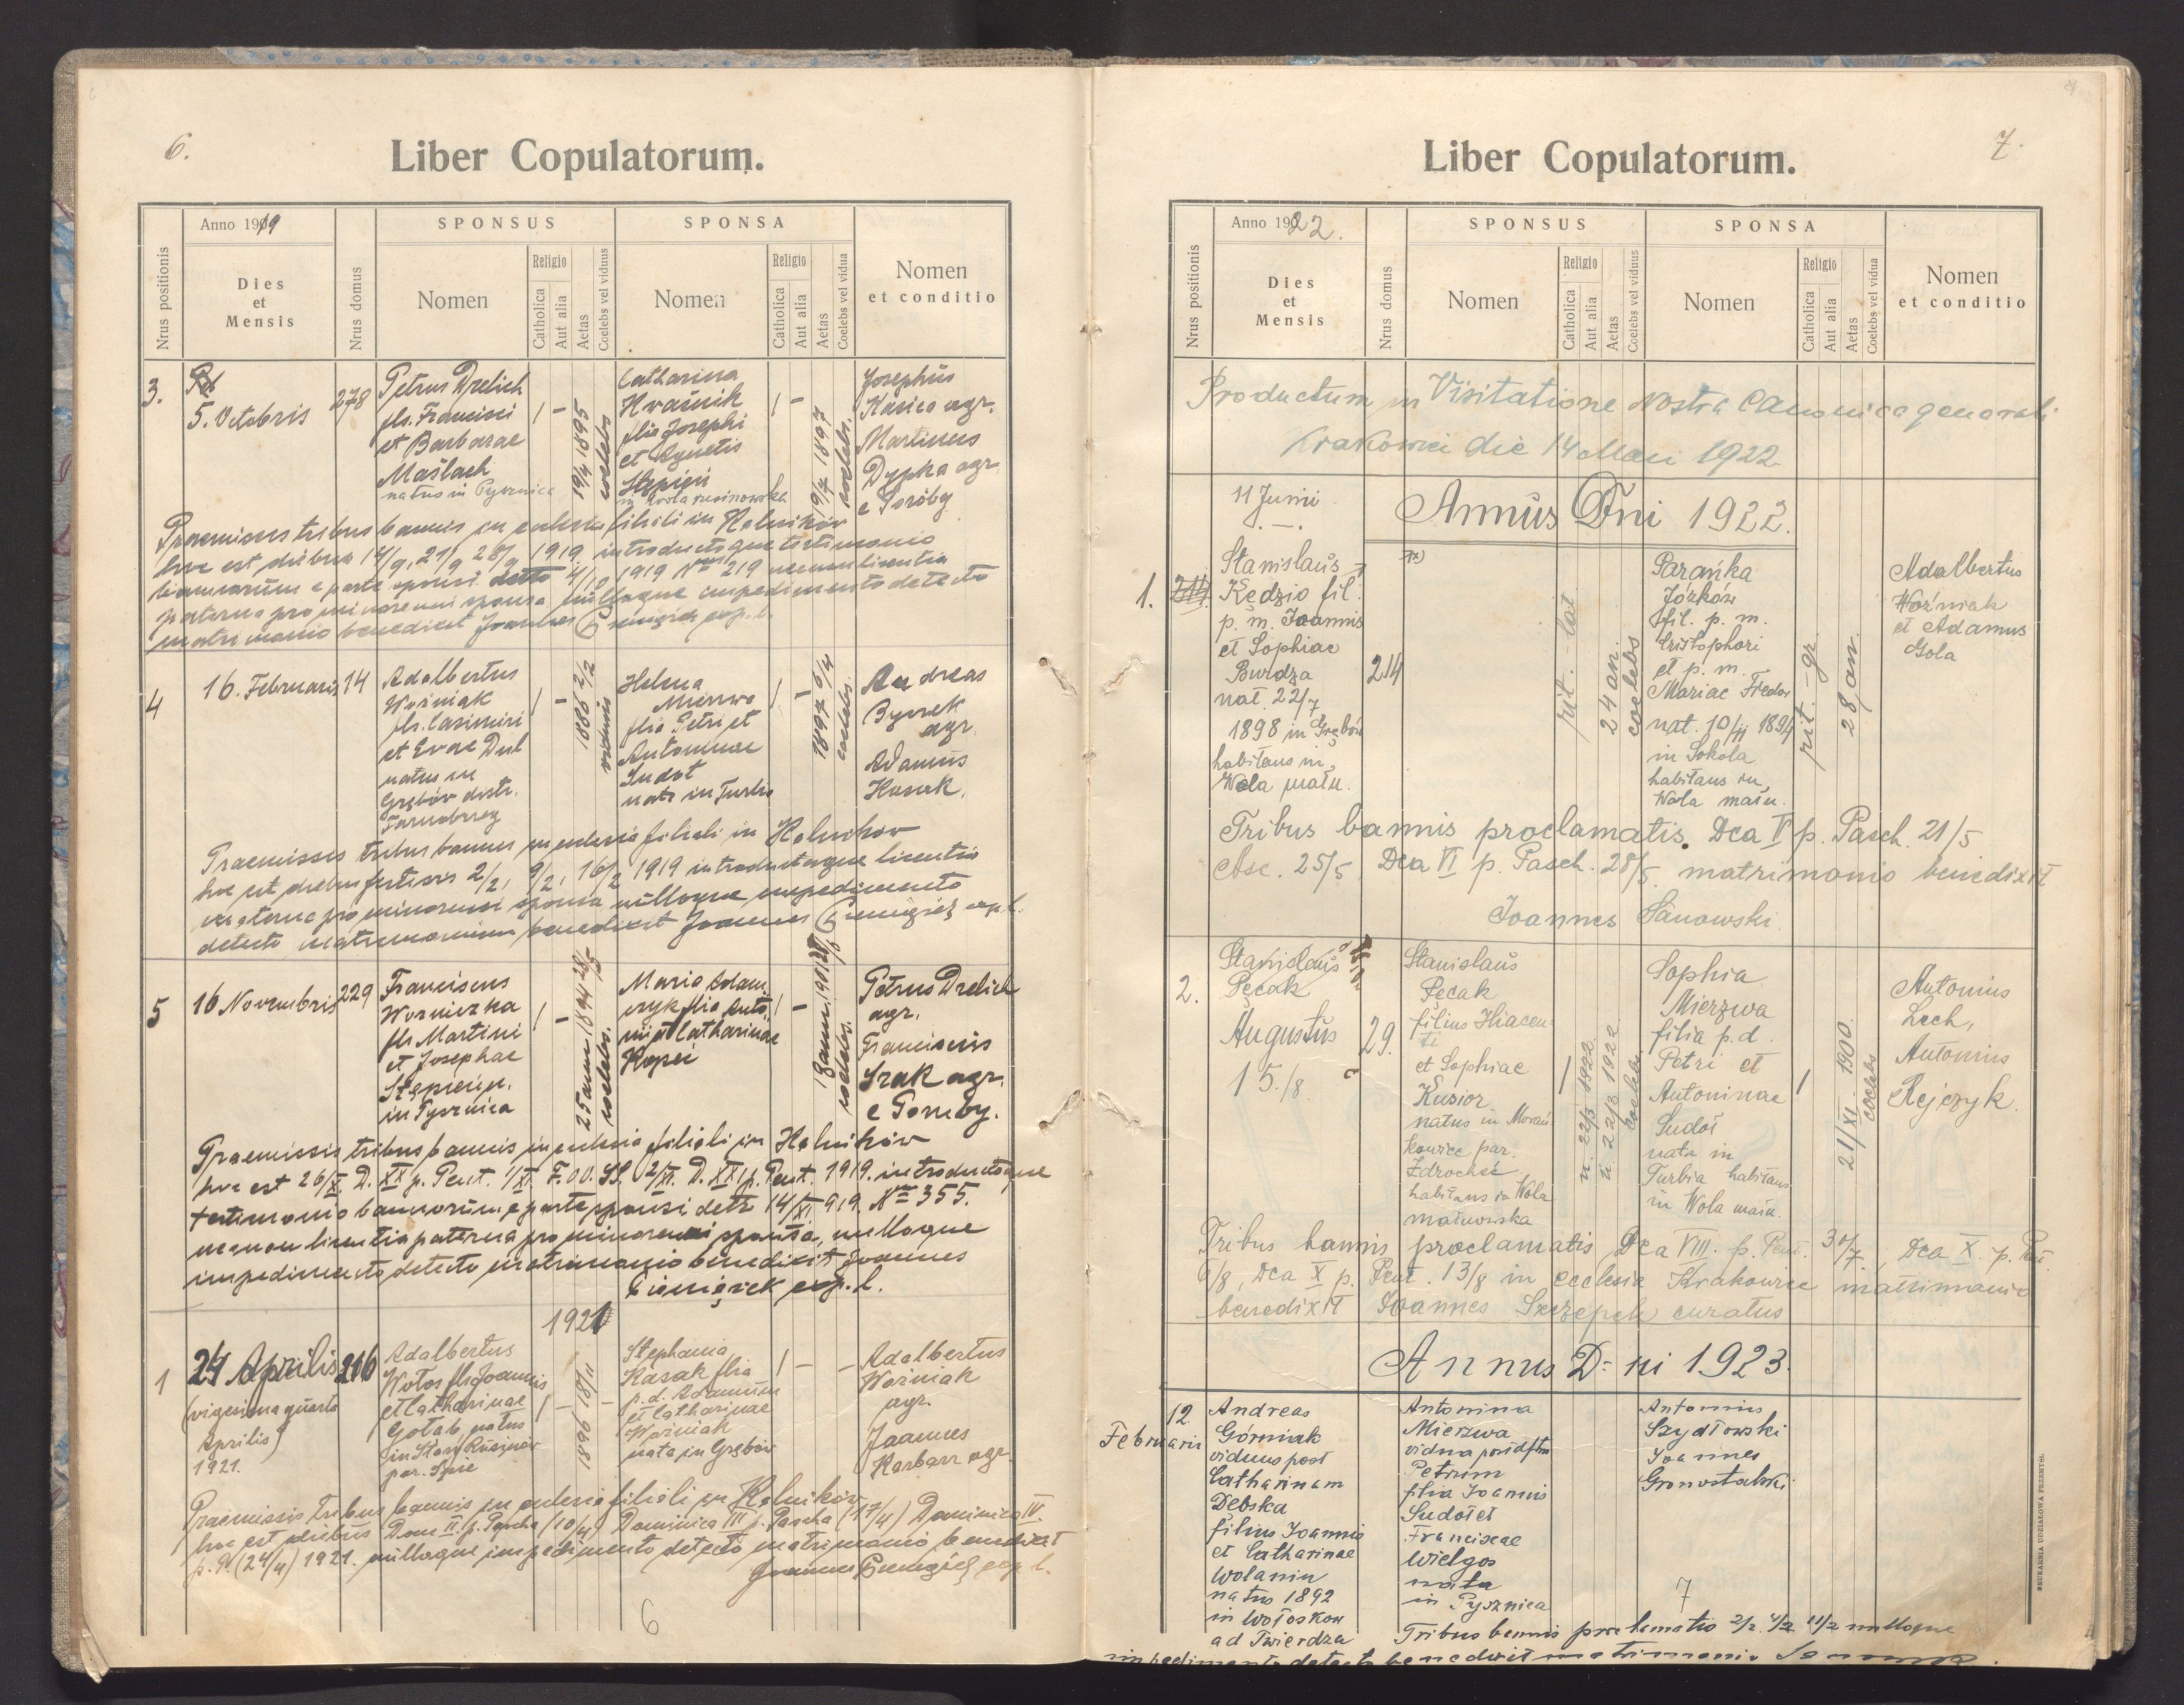 6.
Liber Copulatorum.
Anno 1919
SPONSUS
SPONSA
Nrus positionis
Dies
et
Mensis
Nrus domus
Nomen
Religio
Catholica
Aut alia
Aetas
Coelebs vel viduus
Nomen
Religio
Catholica
Aut alia
Aetas
Coelebs vel vidua
Nomen
et conditio
3.
5. Octobris
278
Petrus Drelich
fls. Francisci
et Barbarae
Maślach
natus in Pysznica
19/4 1895
coelebs
Catharina
Hraśnik
flia Josephi
et Agnetis
Stępień
in Wola rusinowska
19/7 1897
coelebs.
Josephus
Kasica agr.
Martinus
Dypka agr.
e Poręby
Praemissis tribus bannis in ecclesia filiali in Kolników
hoc est diebus 14/9, 21/9 28/9 1919 introductoque testimonio
bannorum e parte sponsi detto 4/10 1919 Nro 219 necnon licentia
paterna pro minorenni sponsa nulloque impedimento detecto
matrimonio benedixit Joannes
4
16. Februarii
14
Adalbertus
Woźniak
fls. Casimiri
et Evae Dul
natus in
Grębów distr.
Tarnobrzeg
1886 2/2
viduus
Helena
Mierzwa
flia Petri et
Antoninae
Sudoł
nata in Turbia
1897 6/4
coelebs.
Andreas
Byczek
agr.
Adamus
Kasak.
Praemissis tribus bannis in ecclesia filiali in Kolników
hoc est diebus festivis 2/2, 9/2, 16/2 1919 introductaque licentia
materna pro minorenni sponsa nulloque impedimento
detecto matrimonium benedixit Joannes
5
16 Novembris
229
Franciscus
Woźniczka
fls Martini
et Josephae
Stępień.
in Pysznica
25 ann 1894 28/5
coelebs.
Maria Adam
czyk flia Anto
nii et Catharinae
Kopeć
18 ann 1901
coelebs.
Petrus Drelich
agr.
Franciscus
Szak agr.
e Poręby.
Praemissis tribus bannis in ecclesia filiali in Kolników
hoc est 26/X. D. XX p. Pent. 1/XI. F. OO. SS. 2/XI. D. XXI p. Pent. 1919. introductoque
testimonio bannorum e parte sponsi detto 14/XI 919. Nro 355.
necnon licentia paterna pro minorenni sponsa, nulloque
impedimento detecto matrimonio benedixit Joannes
exp. l.
1921
1
24 Aprilis
(vigesima quarta
Aprilis)
1921.
216
Adalbertus
Wołos fls Joannis
et Catharinae
Gołąb, natus
in Stary Rusinów
par. Spie
1896 18/11
Stephania
Kasak flia
p. d. Adamum
et Catharinae
Woźniak
nata in Grębów
Adalbertus
Woźniak
agr.
Joannes
Karbarz agr.
Praemissis tribus bannis in ecclesia filiali in Kolników
hoc est diebus Dom II. p. Pascha (10/4) Dominica III p. Pascha (17/4) Dominica IV.
p. P. (24/4) 1921. nulloque impedimento detecto matrimonio benedixit
Joannes
6
7.
Liber Copulatorum.
Anno 1922.
SPONSUS
SPONSA
Nrus positionis
Dies
et
Mensis
Nrus domus
Nomen
Religio
Catholica
Aut alia
Aetas
Coelebs vel viduus
Nomen
Religio
Catholica
Aut alia
Aetas
Coelebs vel vidua
Nomen
et conditio
Productum in Visitatione Nostra Canonica generali
Krakowei die 14 Maii 1922.
11 Junii
Annus Dni 1922.
1.
Stanislaus
Kędzio fil.
p. m. Joannis
et Sophiae
Burdza
nat. 22/7
1898 in Grębów
habitans in
Wola małn.
214
rit. lat
24 an.
coelebs
Parańka
Józków
fil. p. m.
Cristophori
et p. m.
Mariae Fredor
nat. 10/11 1894
in Sokola
habitans in
Wola małn.
rit. gr.
28 an.
Adalbertus
Woźniak
et Adamus
Gola
Tribus bannis proclamatis. Dca V p. Pasch. 21/5
Asc. 25/5 Dca VI p. Pasch. 28/5. matrimonio benedixit
Joannes Sanowski.
2.
Stanislaus
Pęcak
Augustus
15./8.
29.
Stanislaus
Pęcak
filius Hiacen
ti
et Sophiae
Kusior
natus in Morań
kowice par.
Zdrochec
habitans in Wola
małnowska
n. 22/3 1922
n 22/3 1922
coelebs
Sophia
Mierzwa
filia p. d.
Petri et
Antoninae
Sudoł
nata in
Turbia habitans
in Wola małn.
21/XI. 1900.
coelebs
Antonius
Lech,
Antonius
Rejczyk.
Tribus bannis proclamatis Dca VIII. p. Pent. 30/7, Dca X. p. Pent.
6/8, Dca X p. Pent. 13/8 in ecclesia Krakowiec matrimonio
benedixit Joannes Szczepek curatus
Annus D-ni 1923.
12.
Februarii
Andreas
Górniak
viduus post
Catharinam
Dębska
filius Joannis
et Catharinae
Wolanin
natus 1892
in Wołoskow
ad Twierdza
Antonina
Mierzwa
vidua post dftm
Petrum
filia Joannis
Sudoł et
Franciscae
Wielgos
nata
in Pysznica
Antonius
Szydłowski
Joannes
Gronostalski
7
Tribus bannis proclamatis 2/2 4/2 11/2 nulloque
impedimento detecto benedixit matrimonio
DRUKARNIA UDZIAŁOWA PRZEMYŚL